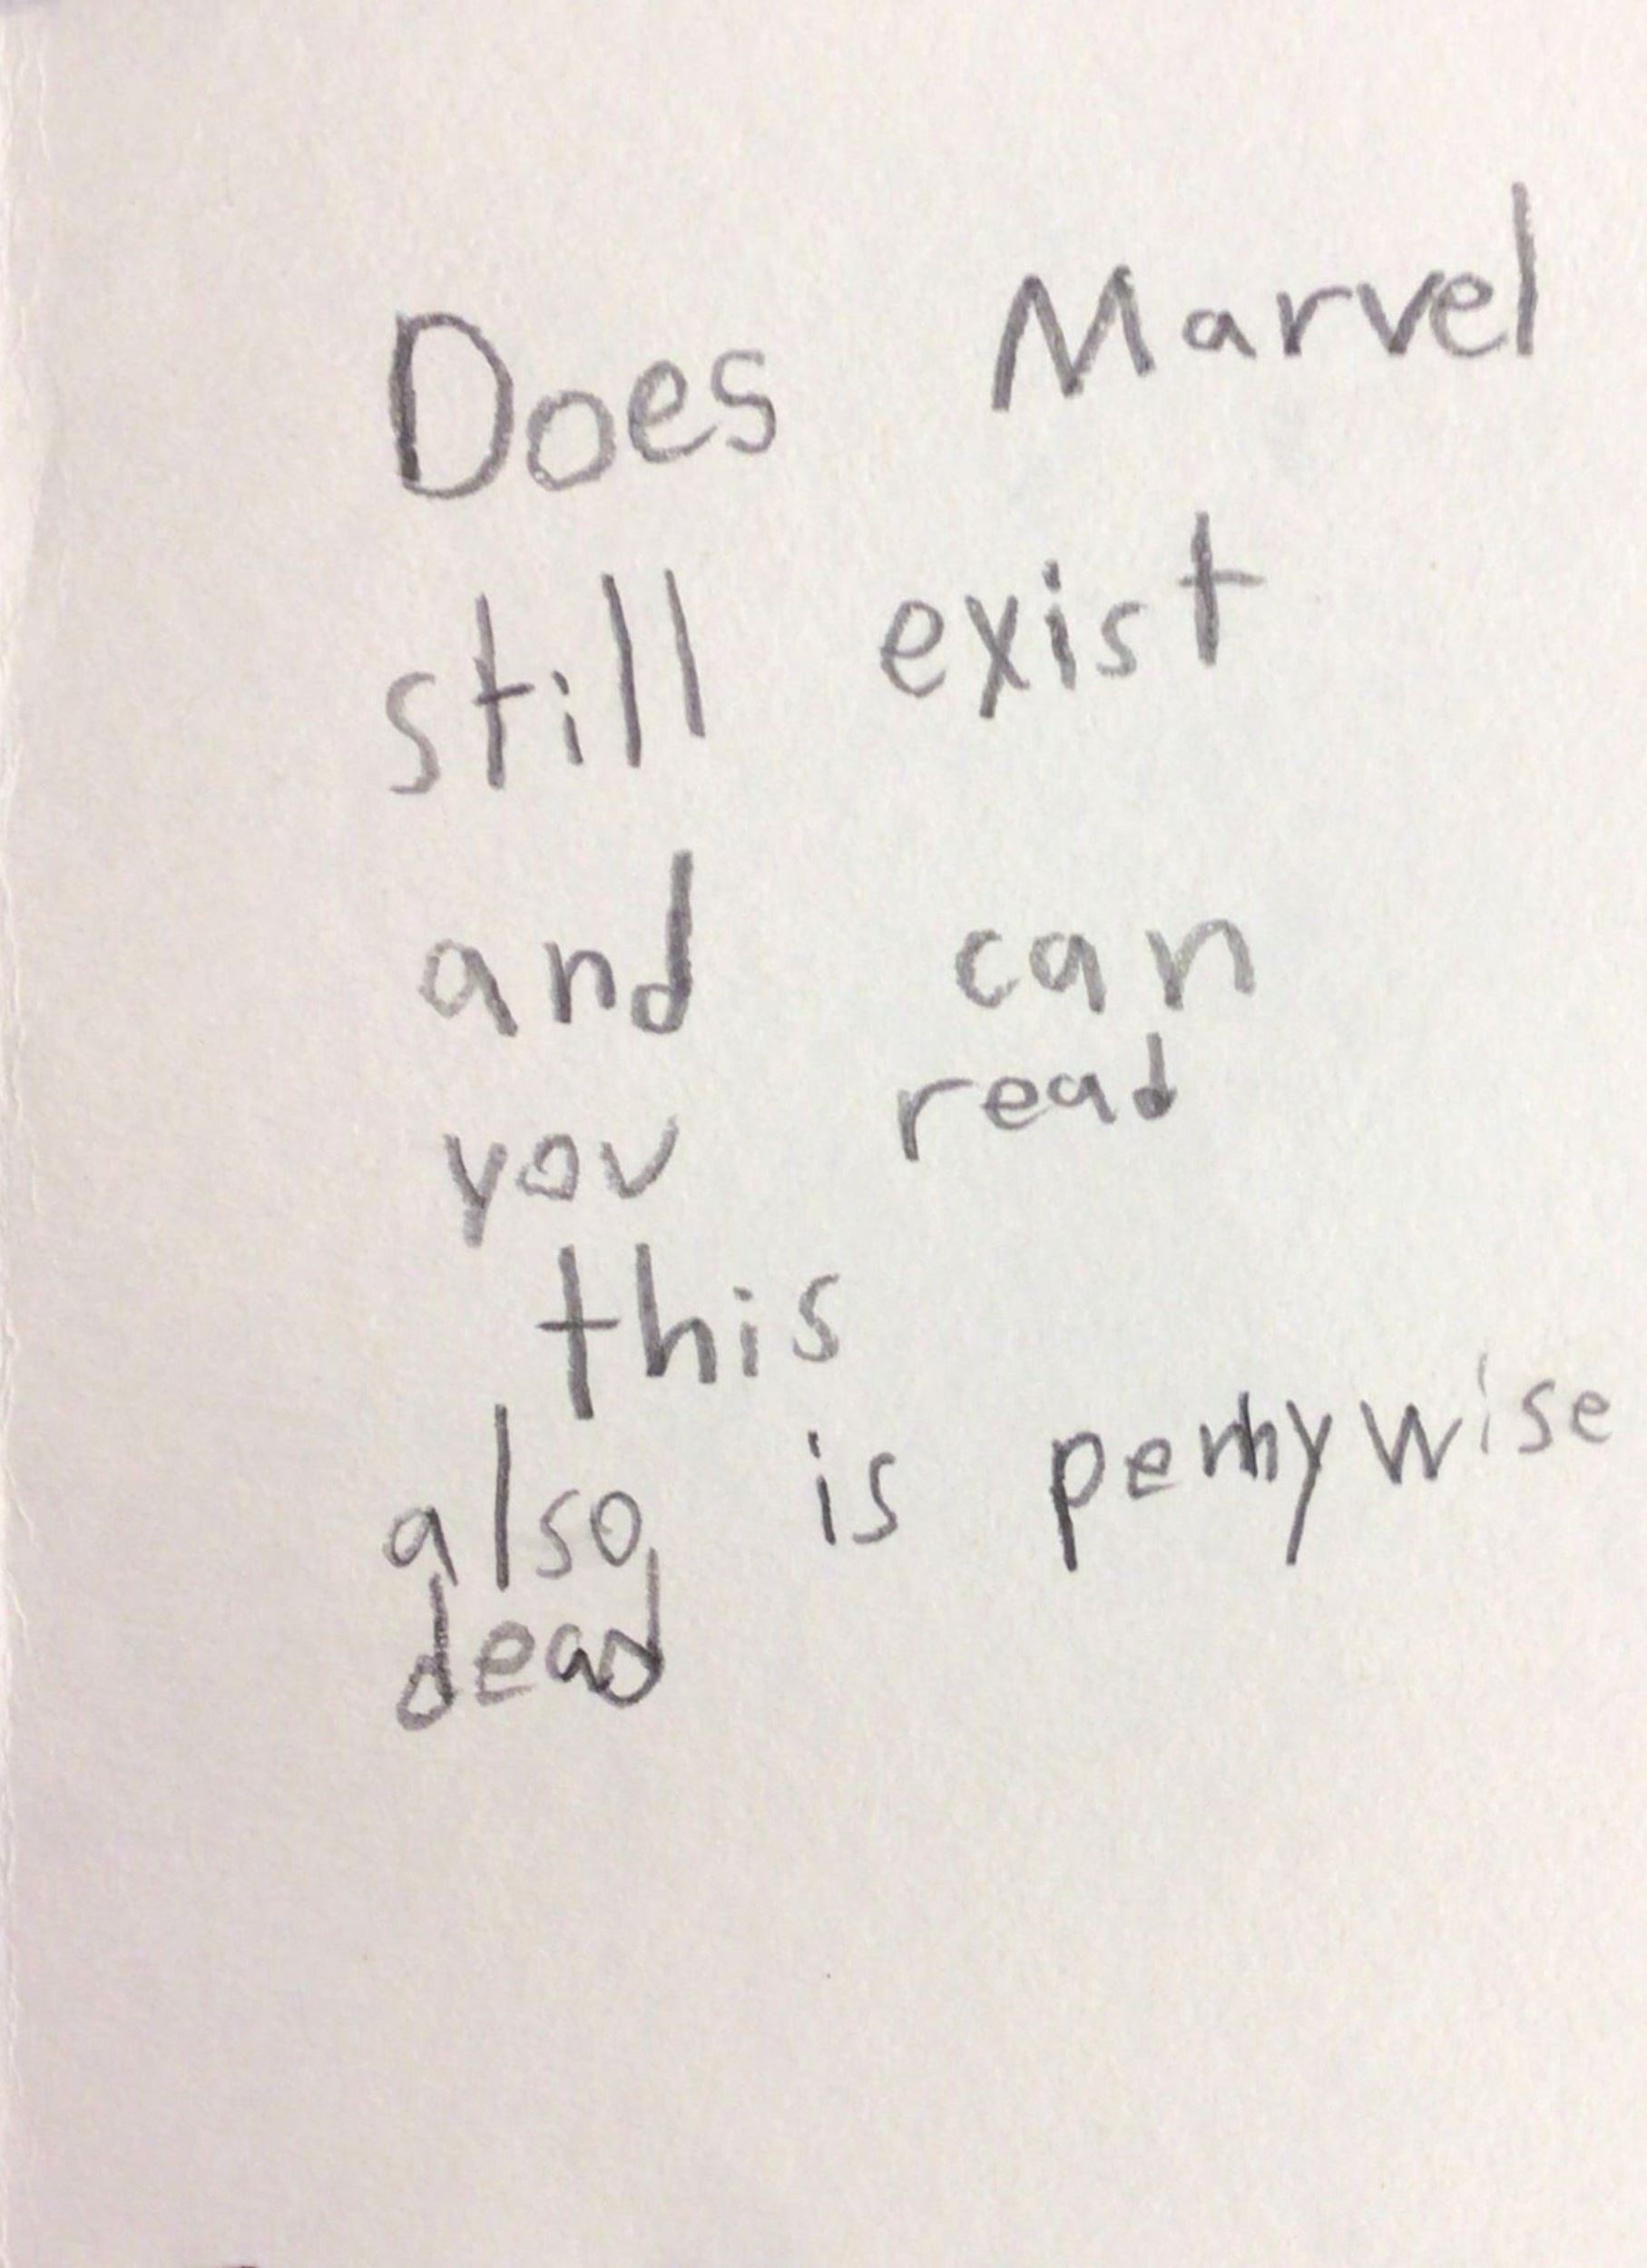 Does Marvel
still exist
and can
you read
this
also is pennywise
dead